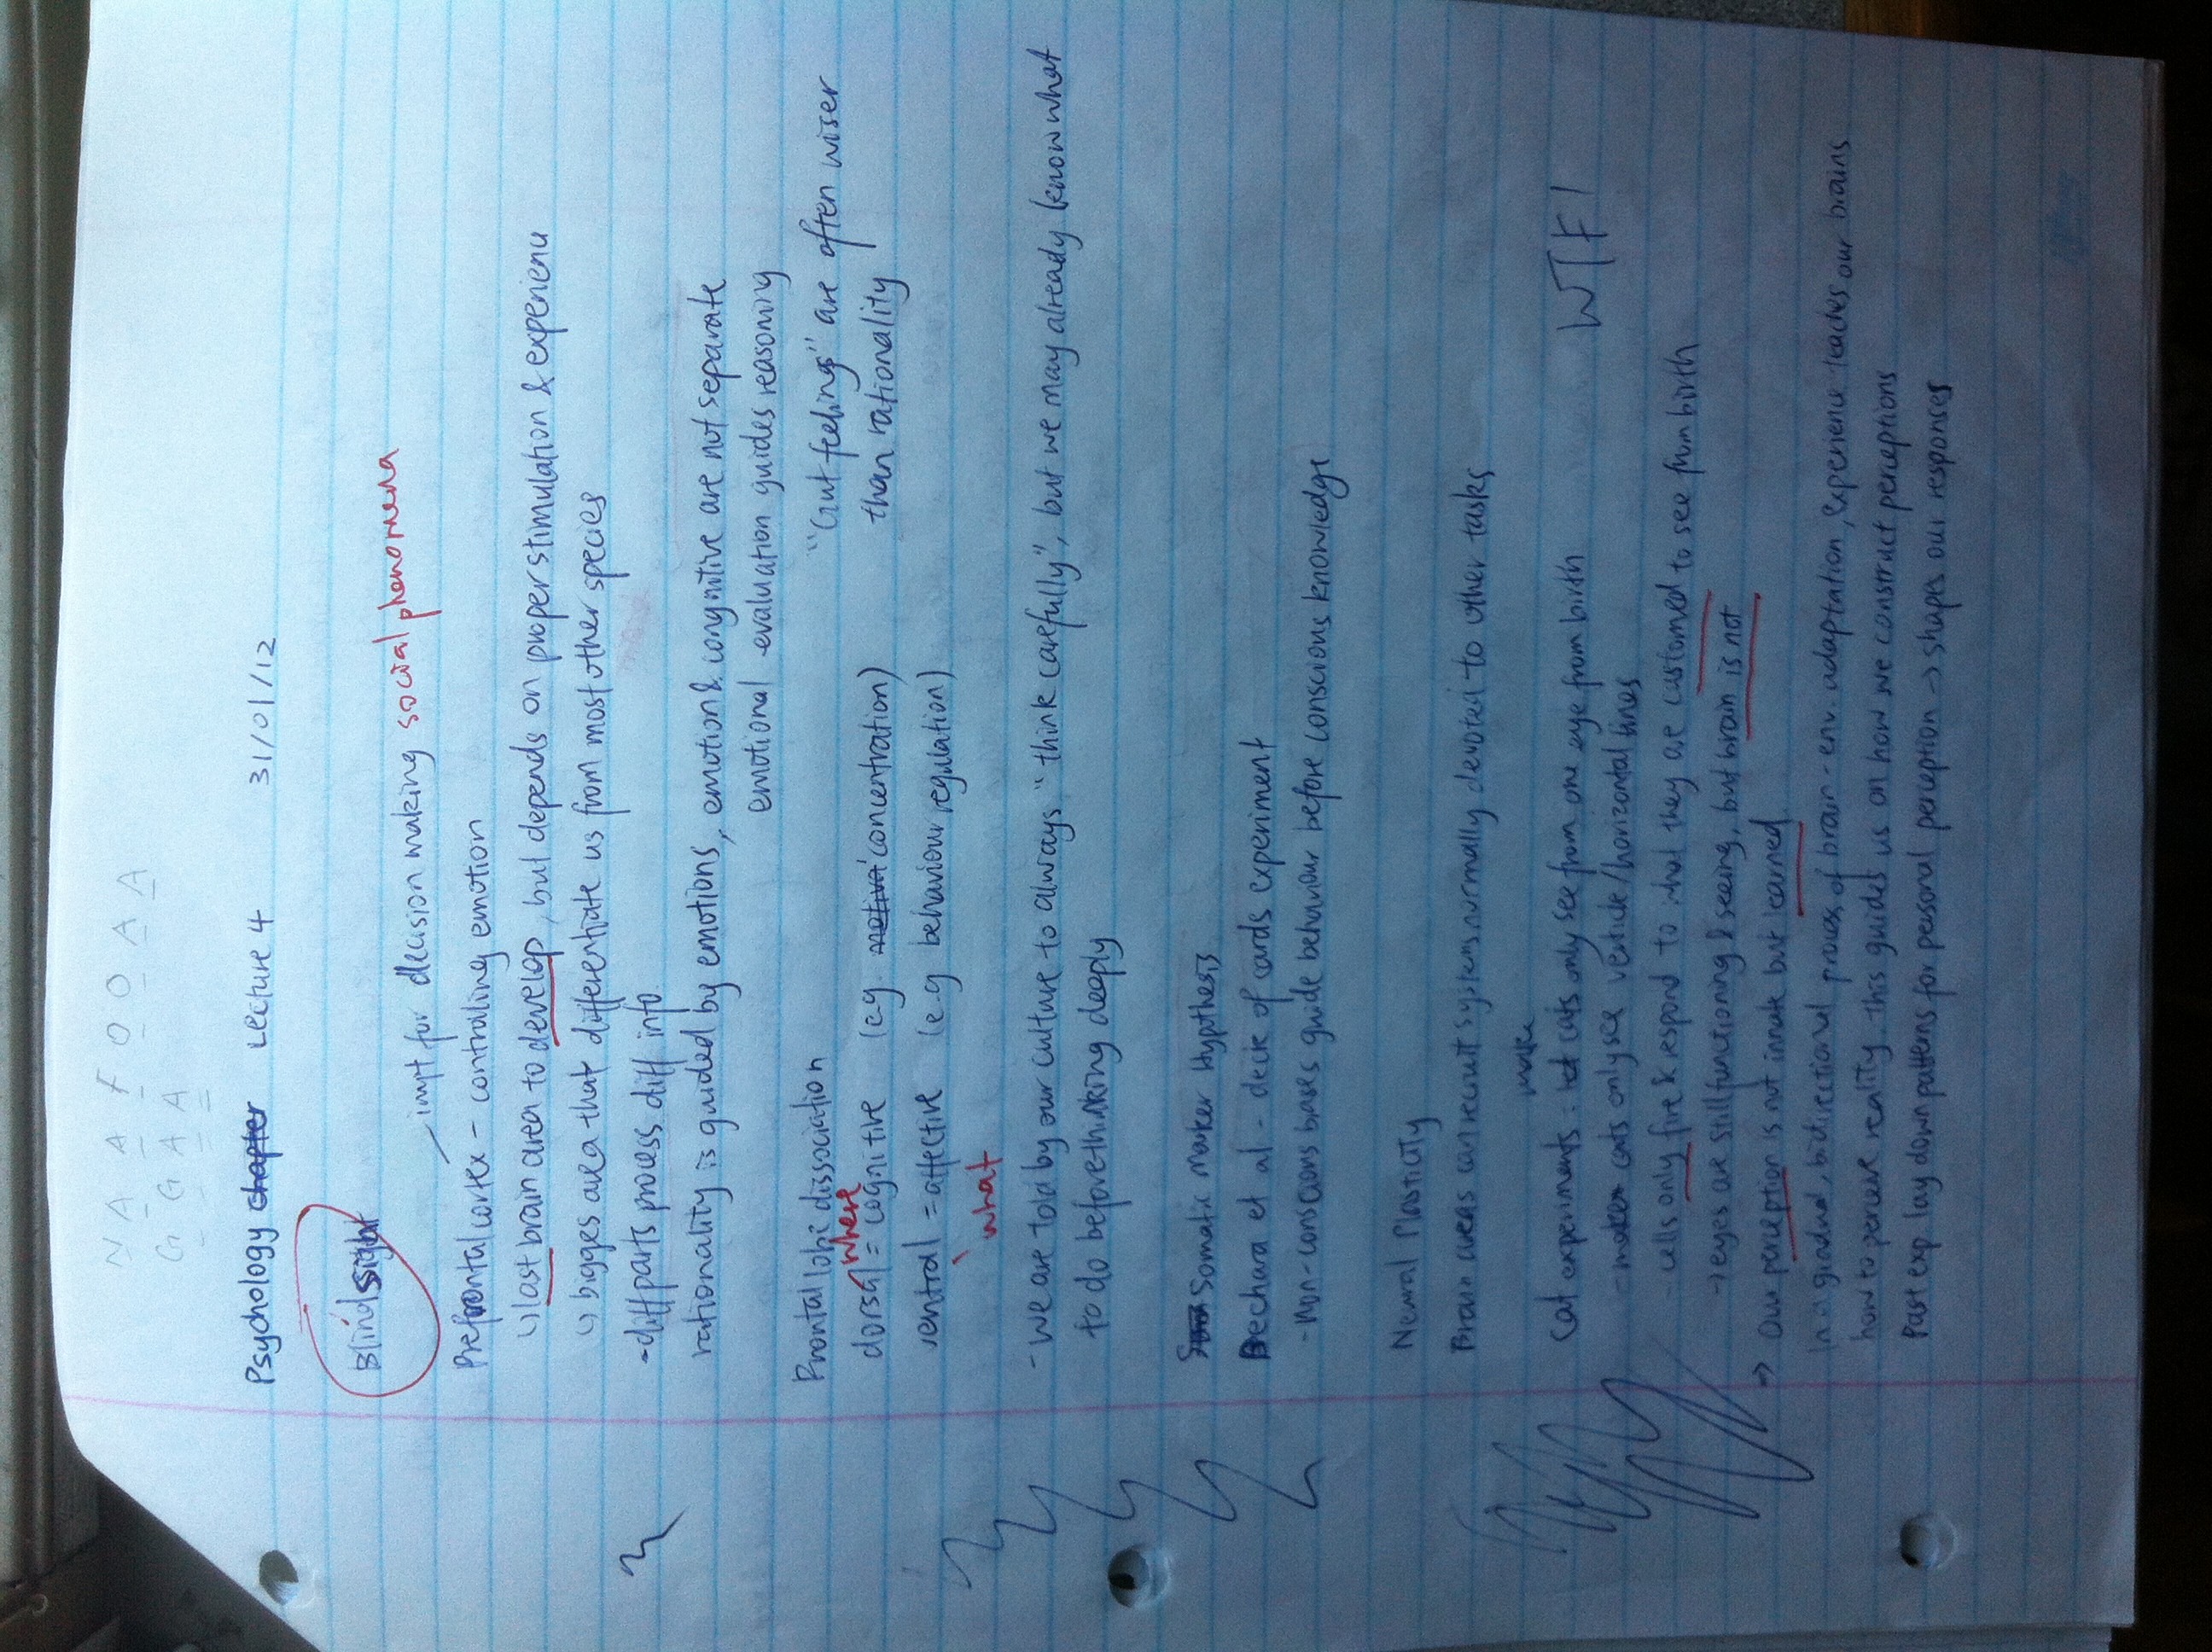 N A A F O O A A
G G A A
Psychology chapter Lecture 4 31/01/12
Blindsight
impt for decision making social phenomena
Prefrontal cortex - controlling emotion
↳ last brain area to develop, but depends on proper stimulation & experience
↳ bigges area that differentiate us from most other species
- diff parts process diff info
rationality is guided by emotions, emotion & cognitive are not separate
emotional evaluation guides reasoning
"Gut feeling" are often wiser
than rationality
Frontal lobe dissociation
where
dorsal = cognitive (e.g. concentration)
ventral = affective (e.g behaviour regulation)
what
- we are told by our culture to always "think carefully", but we may already know what
to do before thinking deeply
Somatic marker Hypothesis
Bechara et al - deck of cards experiment
- non-conscious biases guide behaviour before conscious knowledge
Neural Plasticity
Brain areas can recruit systems normally devoted to other tasks
make
Cat experiments : cats only see from one eye from birth
WTF!
- cats only see verticle/horizontal lines
- cells only fire & respond to what they are customed to see from birth
→ eyes are still functioning & seeing, but brain is not
→ Our perception is not innate but learned.
In a gradual, bidirectional process of brain - env. adaptation, experience teaches our brains
how to perceive reality. this guides us on how we construct perceptions
Past exp. lay down patterns for personal perception → shapes our responses